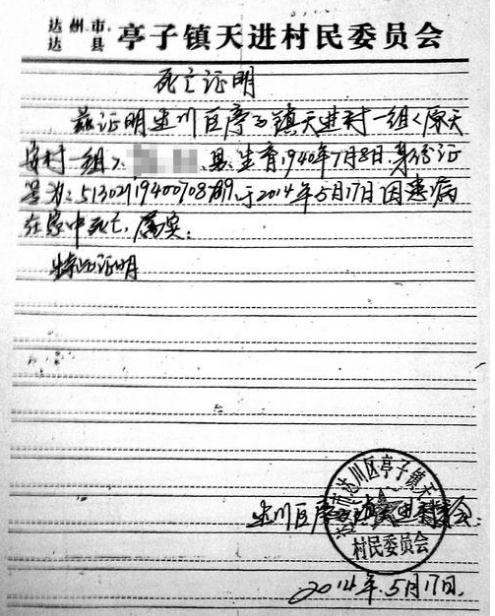 达州市达县 亭子镇天进村民委员会
死亡证明
兹证明达川区亭子镇天进村一组(原天
安村一组)、男、生育1940年7月8日.身份证
号为: 于2014年5月17日因患病
在家中死亡,属实;
特此证明
达川区亭子镇天进村委会
达川区亭子镇天
村民委员会
2014年.5月17日.